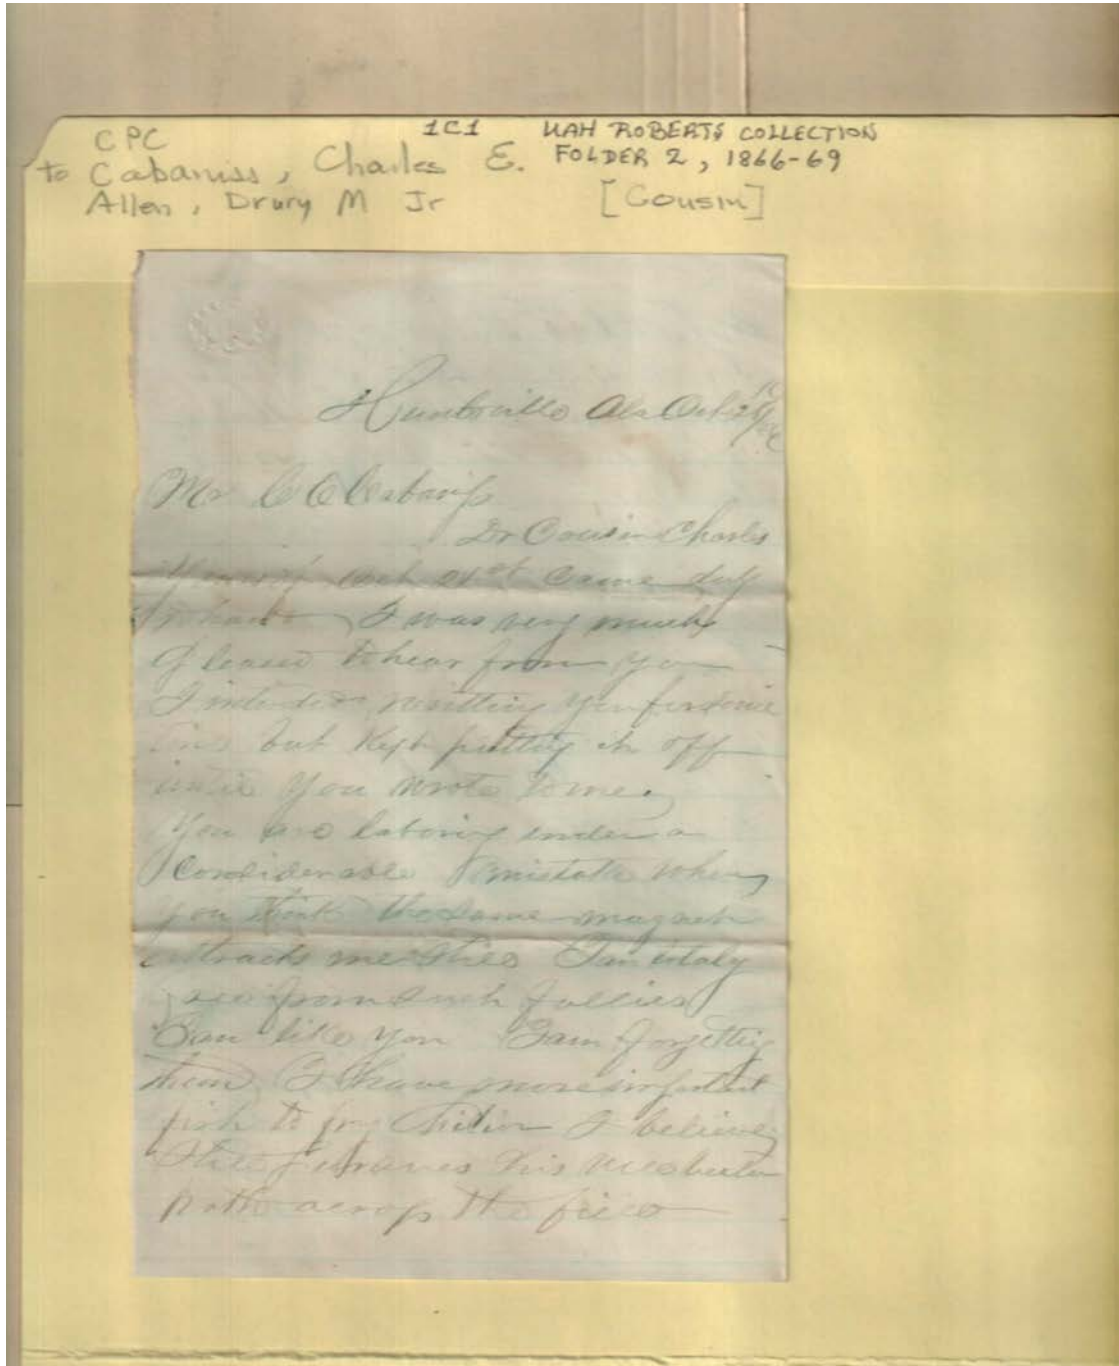 CPC 1C1 UAH ROBERTS COLLECTION
to Cabaniss, Charles E. FOLDER 2, 1866-69
Allen, Drury M Jr [Cousin]
Huntsville Ala Oct
Mr C E Cabaniss
Dr Cousin Charles
Yours of 21st came duly
to hand I was very much
pleased to hear from you
I intended writting you for some
time but kept putting it off
until you wrote to me
You are laboring under a
Considerable mistake when
you think the same magnet
attracts me still I am
free from such follies
I am like you I am forgetting
them I have more important
fish to fry I believe
still his
path across the field